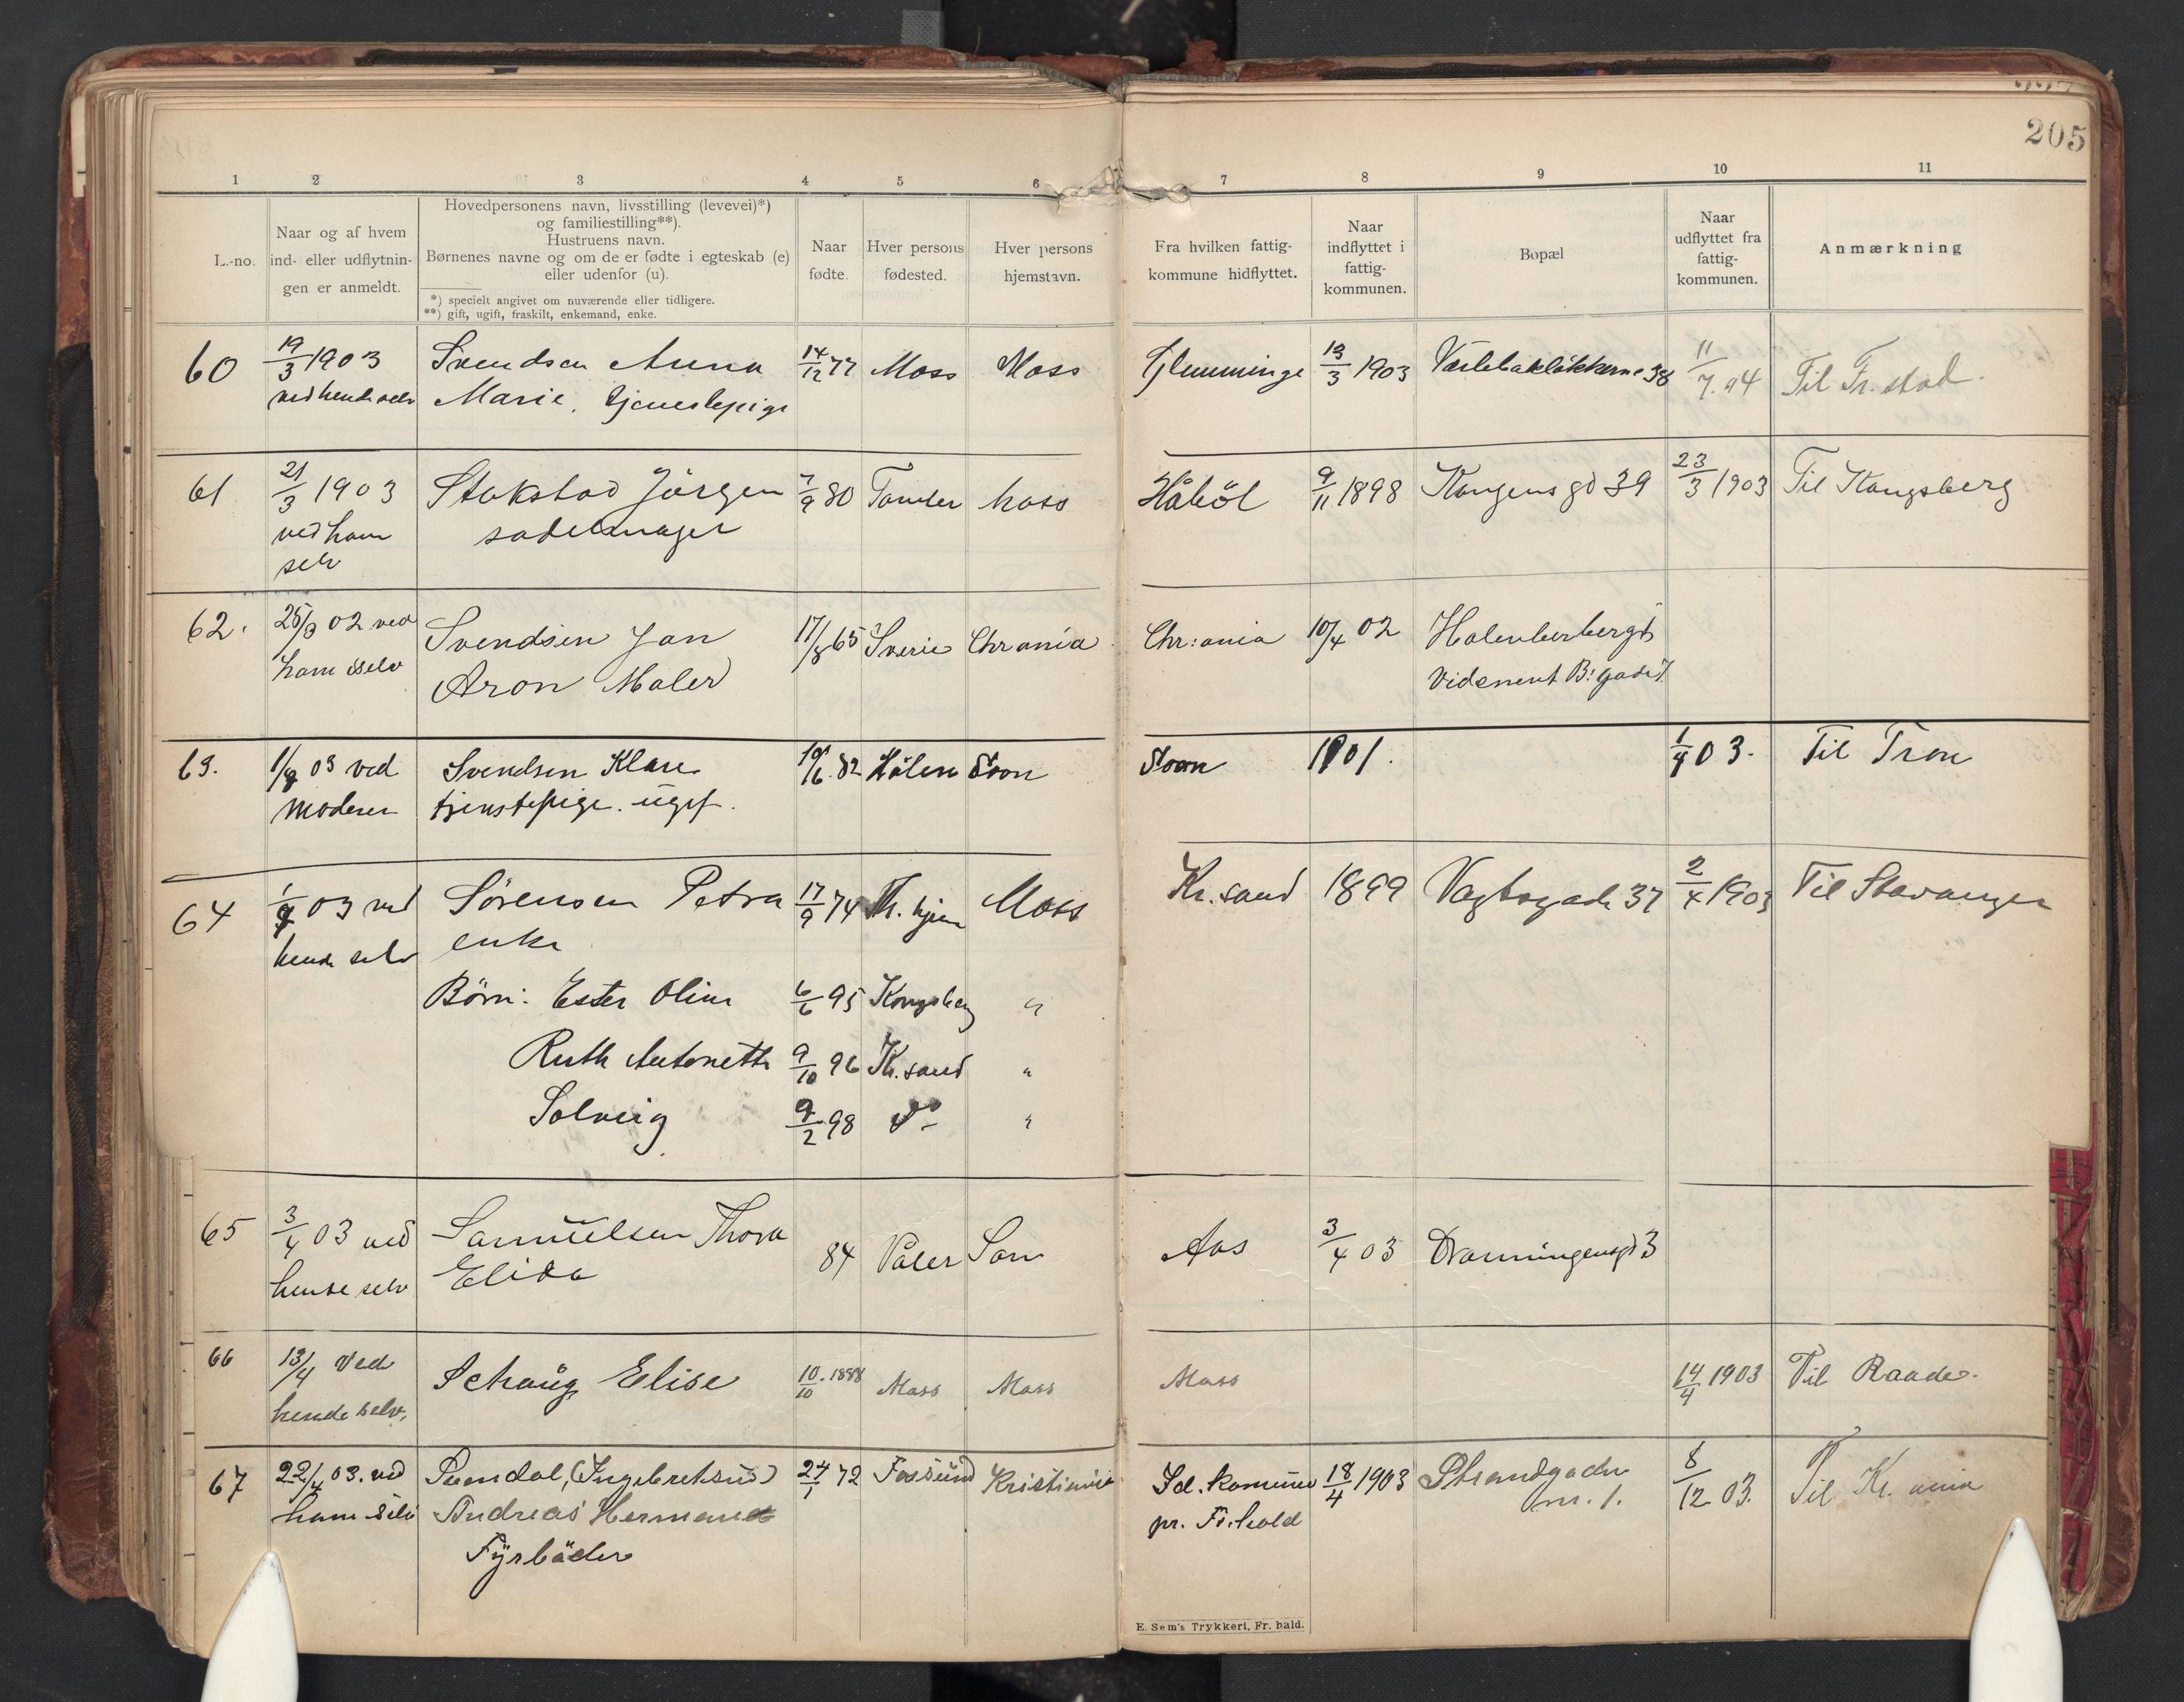 205
1 2 3 4 5 6 7 8 9 10 11
L.-no.
Naar og af hvem
ind- eller udflytnin-
gen er anmeldt.
Hovedpersonens navn, livsstilling (levevei)*)
og familiestilling**).
Hustruens navn.
Børnenes navne og om de er fødte i egteskab (e)
eller udenfor (u).
*) specielt angivet om nuværende eller tidligere.
**) gift, ugift, fraskilt, enkemand, enke.
Naar
fødte.
Hver persons
fødested.
Hver persons
hjemstavn.
Fra hvilken fattig-
kommune hidflyttet.
Naar
indflyttet i
fattig-
kommunen.
Bopæl
Naar
udflyttet fra
fattig-
kommunen.
Anmærkning
60 19/3 1903 Svendsen Anna 14/12 77 Moss Moss Glemminge 13/3 1903 Værlebakløkkerne 38 11/7.04 Til Fr.stad.
ved hende selv Marie, tjenestepige
61 21/3 1903 Stokstad Jörgen 7/9 80 Tomter Moss Håböl 9/11 1898 Kongens gd 39 23/3 1903 Til Kongsberg
ved ham sadelmager
selv
62. 25/3 02 ved Svendsen Jan 17/8 65 Sverie Chrania Chr:ania 10/4 02
ham selv Aron Maler
63. 1/4 03 ved Svendsen Klara 19/6.82 Hölen Soon Soon 1901. 1/4 03. Til Tron
Moderen tjenstepige. ugif.
64 1/4 03 ved Sörensen Petra 17/9 74 Moss Kr.sand 1899 Vogtsgade 37 2/4 1903 Til Stavanger
hende selv enke
Börn: Ester Oline 6/6 95 Kongsberg "
Ruth Antonette 9/10 96 Kr.sand "
Solveig 9/2 98 do "
65 3/4 03 ved Samuelsen Thora 84 Våler Son Aas 3/4 03 Dronningensgd 3
hende selv Elida
66 13/4 Ved Schaug Elise 10/10.1888 Moss Moss Moss 14/4 1903 Til Raade.
hende selv.
67 22/4 03. ved (Ingebretsen) 24/1 72 Fossund Kristiania Sel. komune 18/4 1903 Strandgaden 8/12 03. Til Kr. ania
ham selv Andreas Herman pr. Fr.hald nr. 1.
Fyrböder
E. Sem's Trykkeri, Fr. hald.